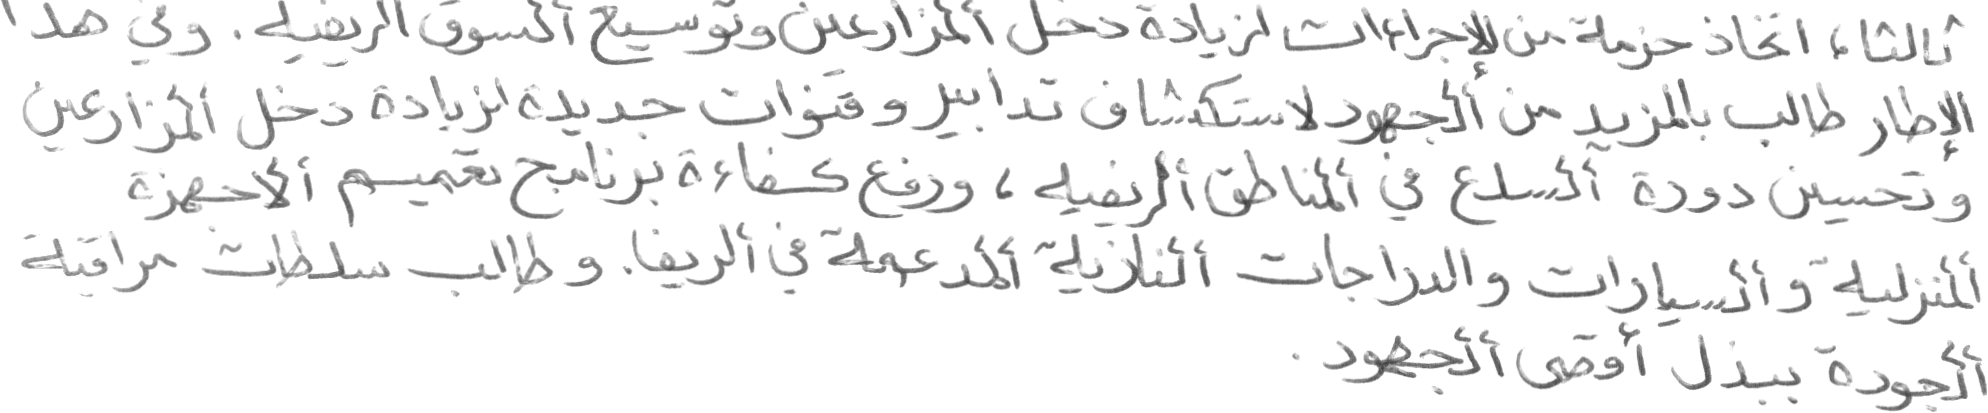 ثالثا، اتخاذ حزمة من الإجراءات لزيادة دخل المزارعين وتوسيع السوق الريفية. وفي هذا
الإطار طالب بالمزيد من الجهود لاستكشاف تدابير وقنوات جديدة لزيادة دخل المزارعين
وتحسين دورة السلع في المناطق الريفية، ورفع كفاءة برنامج تعميم الأجهزة
المنزلية والسيارات والدراجات النارية المدعمة في الريف. وطالب سلطات مراقبة
الجودة ببذل أقصى الجهود.